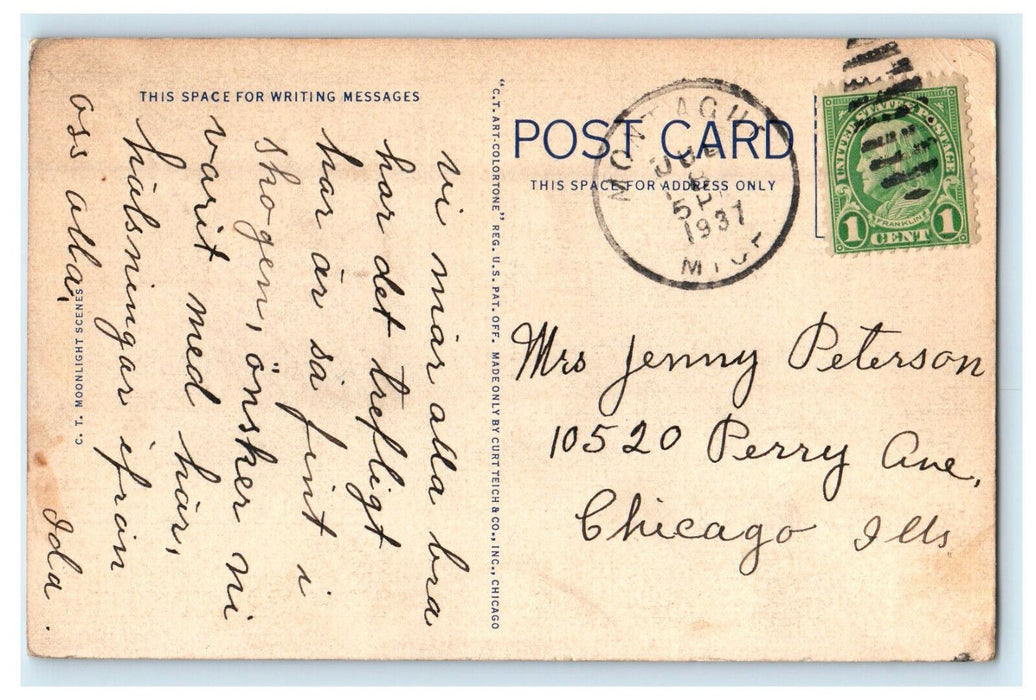 THIS SPACE FOR WRITING MESSAGES
vi mår alla bra
har det trefligt
har är så fint i
shogen, önsker ni
varit med här,
hälsningar ifrån
oss alla,
Ida.
C. T. MOONLIGHT SCENES
"C.T. ART-COLORTONE" REG. U.S. PAT. OFF. MADE ONLY BY CURT TEICH & CO., INC., CHICAGO
POST CARD
THIS SPACE FOR ADDRESS ONLY
MONTAGUE
JUL
5 P
1937
MICH
UNITED STATES POSTAGE
FRANKLIN
1 CENT 1
Mrs Jenny Peterson
10520 Perry Ave,
Chicago Ills